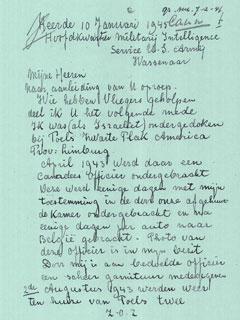 Heerde 10 Januari 1945
Hoofdkwartier Military Intelligence
Service U.S. Army
Wassenaar
Mijne Heeren
Naar aanleiding van U oproep.
Wie hebben Vliegers geholpen
deel ik U het volgende mede
Ik was (als Israeliet) ondergedoken
bij Toels Plak America
Prov. Limburg
April 1943 werd daar een
Canadees Officier ondergebracht
Deze werd eenige dagen met mijn
toestemming in de door onze afgehuurde
de Kamer ondergebracht en na
eenige dagen per auto naar
België gebracht. Photo van
deze officier is in mijn bezit
Door mij is aan bedoelde officier
een scheer garnituur medegegeven
2de Augustus 1943 werden weer
ten huize van Toels twee
Z.O.Z